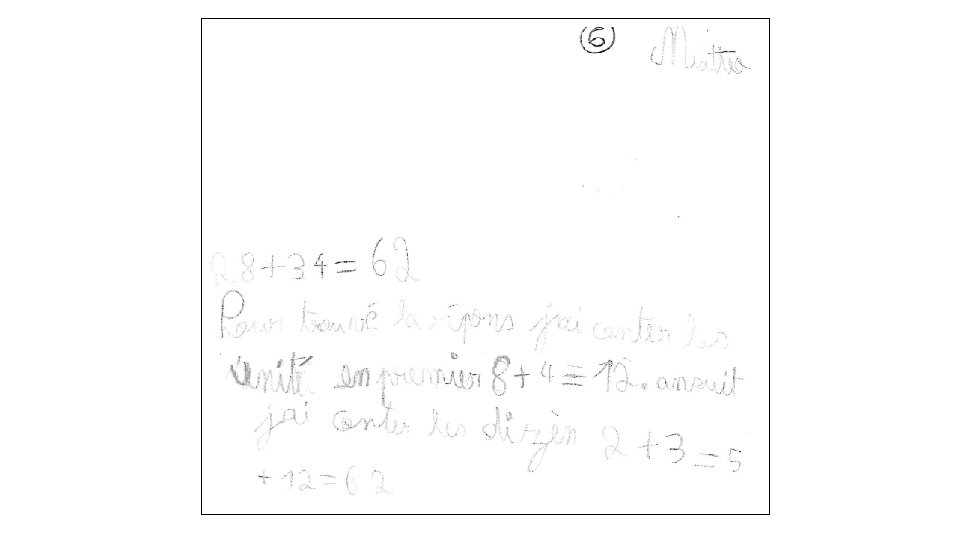 6
28+34=62
Pour trouvé la répons j'ai conter les
unité en premier 8+4=12. ansuit
j'ai conter les dizèn 2+3=5
+12=62